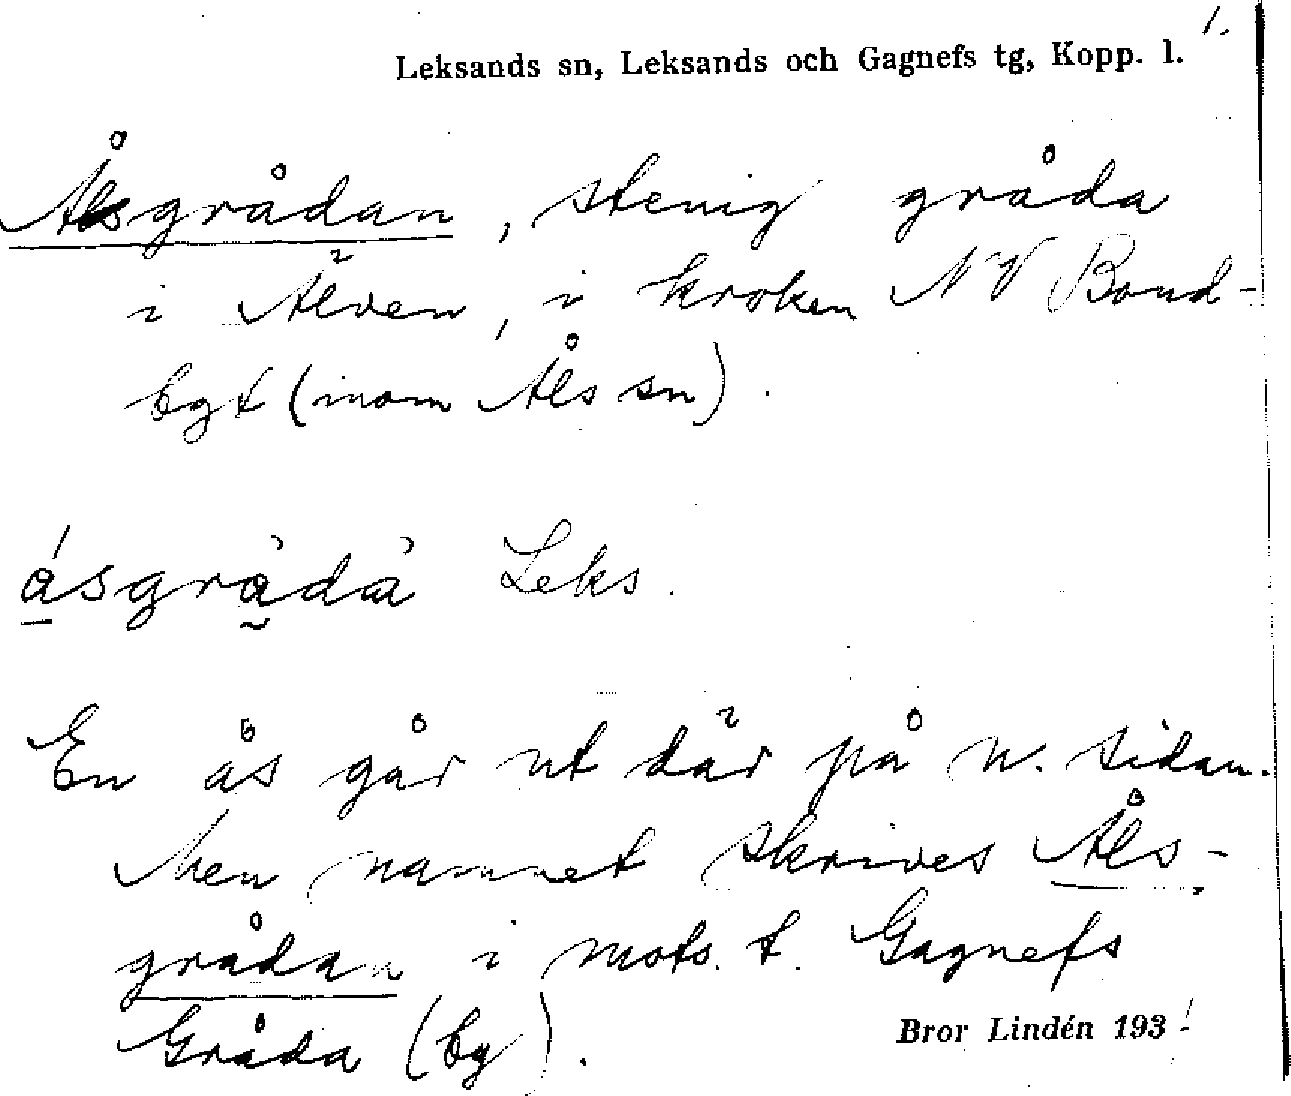 1.
Leksands sn, Leksands och Gagnefs tg, Kopp. l.
Åsgrådan, stenig gråda
i Älven, i kroken NV Bond-
bgt (inom Åls sn).
ásgràdà Leks.
En ås går ut där på n. sidan.
Men namnet skrives Åls-
grådan i mots. t. Gagnefs
Gråda (by).
Bror Lindén 193